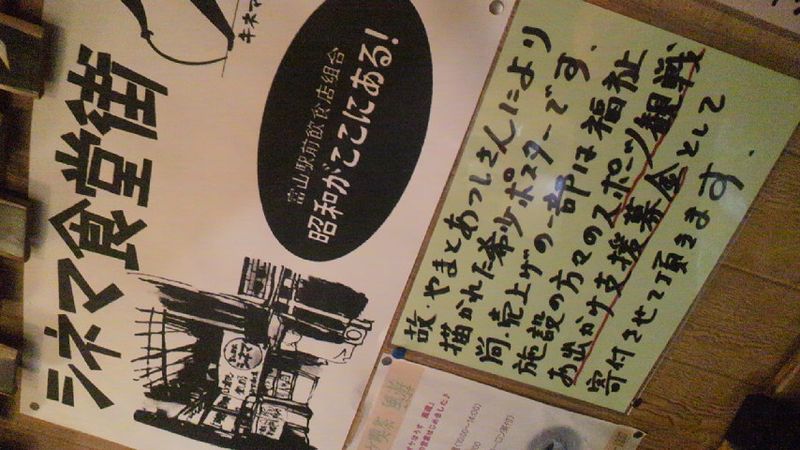 シネマ食堂街
富山駅前飲食店組合
昭和がここにある!
故・やまとあつしさんにより
描かれた希少ポスターです。
尚、売上げの一部は福祉
施設の方々のスポーツ観戦
お出かけ支援募金として
寄付させて頂きます。